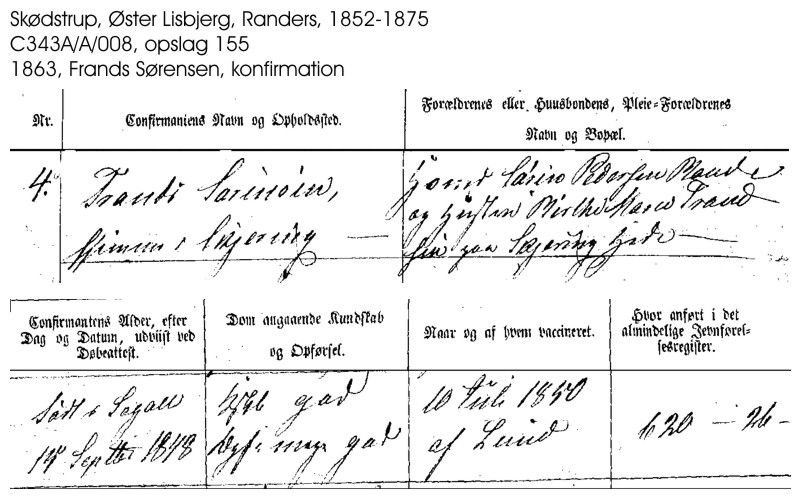 Skødstrup, Øster Lisbjerg, Randers, 1852-1875
C343A/A/008, opslag 155
1863, Frands Sørensen, konfirmation
Nr.
Confirmaniens Navn og Opholdssted.
Forældrenes eller Huusbondens, Pleie-Forældrenes
Navn og Bopæl.
4.
Frands Sørensen,
hjemme i Skjering
Søren Pedersen
og Hustru Birthe Marie Frand
sen paa Skjering Hede
Confirmantens Alder, efter
Dag og Datum, udviist ved
Døbeattest.
Dom angaaende Kundskab
og Opførsel.
Naar og af hvem vaccineret.
Hvor anført i det
almindelige Jevnførel-
sesregister.
Født i Segalt
15 Septbr 1848
Kdsk god
Opf: meget god
10 Juli 1850
af Lund
620 - 26 -